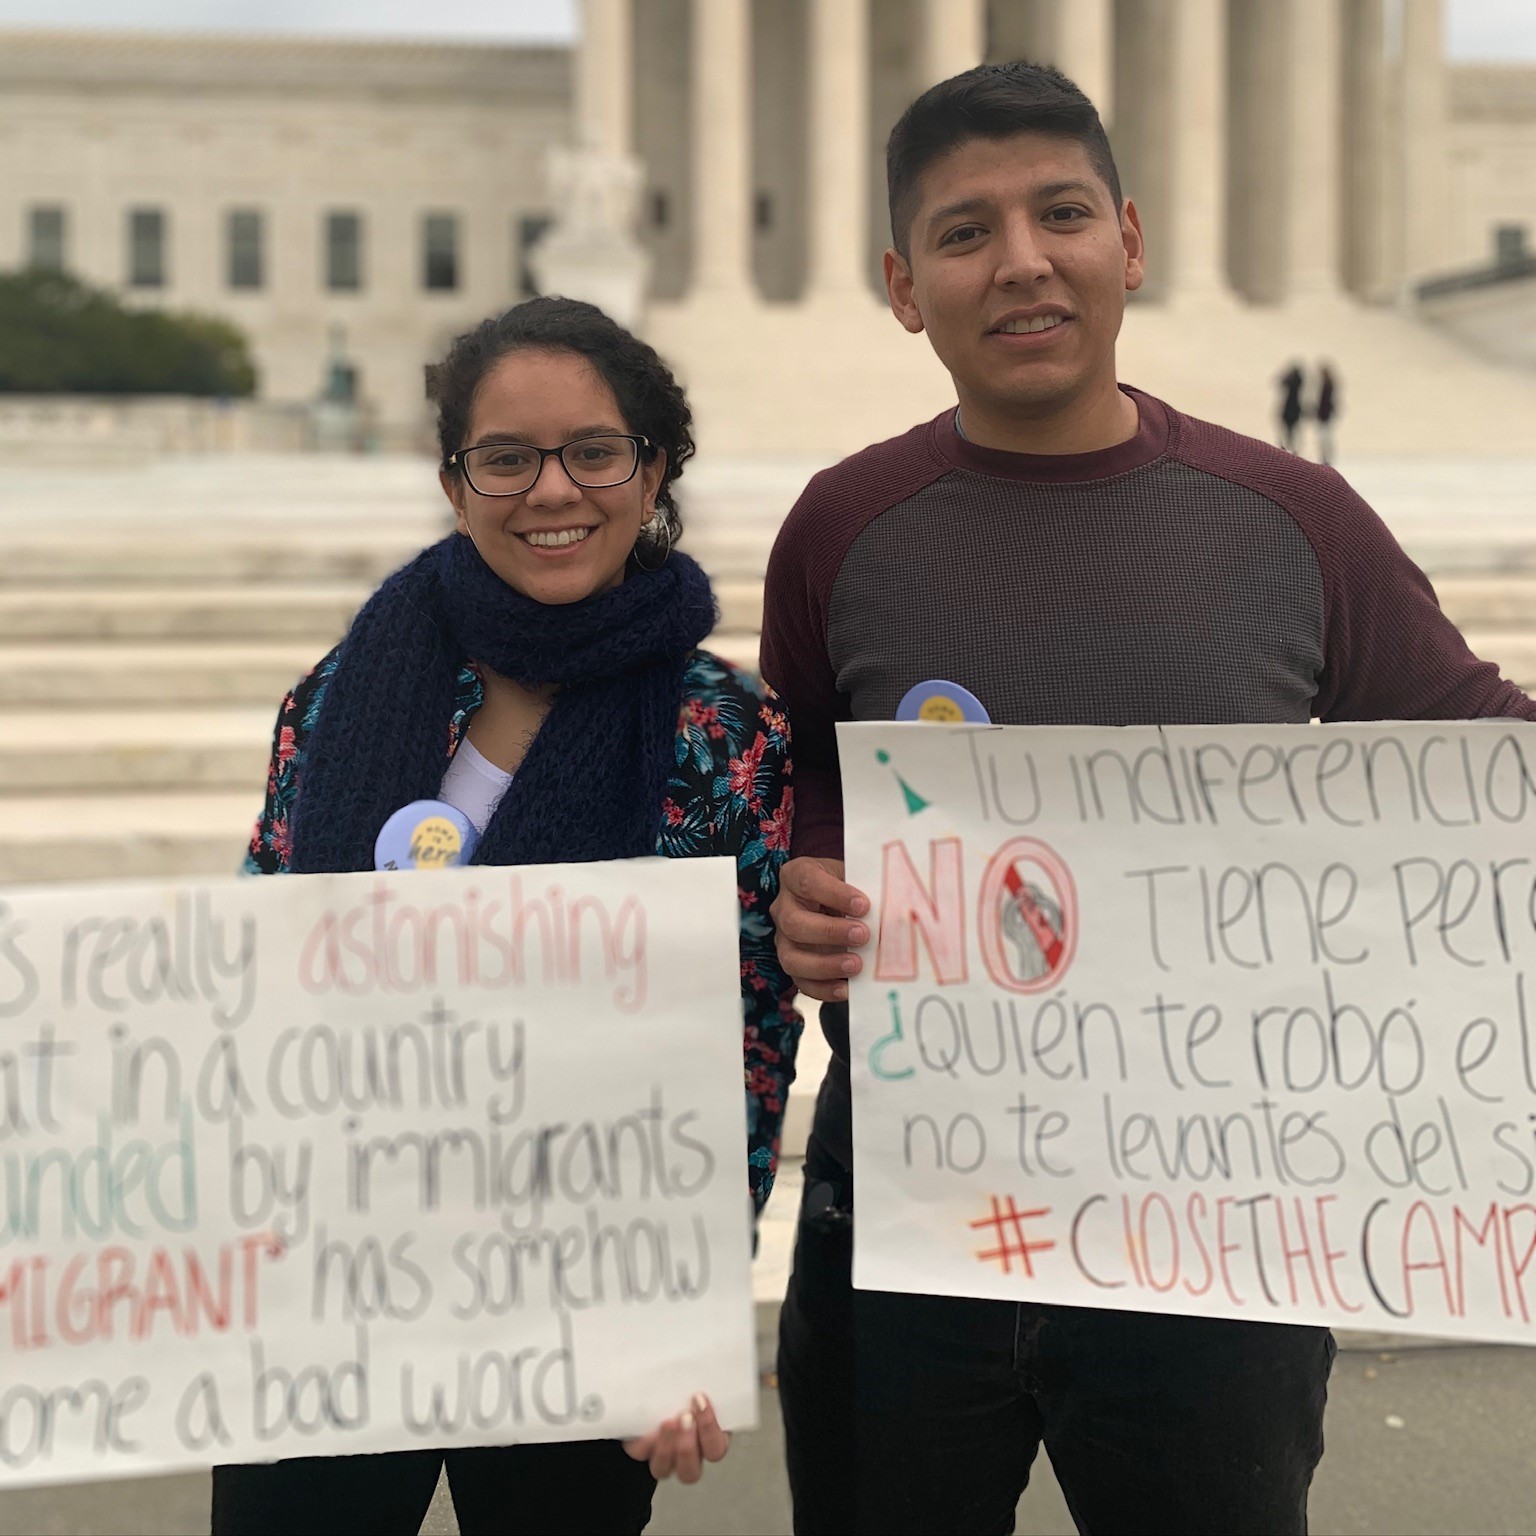 HOME
IS
here
's really astonishing
at in a country
unded by immigrants
MIGRANT" has somehow
ome a bad word.
HOME
¡Tu indiferencia
NO tiene per
¿Quién te robó el
no te levantes del si
#CLOSETHECAMP